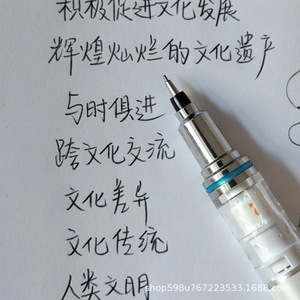 积极促进文化发展
辉煌灿烂的文化遗产
与时俱进
跨文化交流
文化差异
文化传统
人类文明
shop598u767223533.1688.com